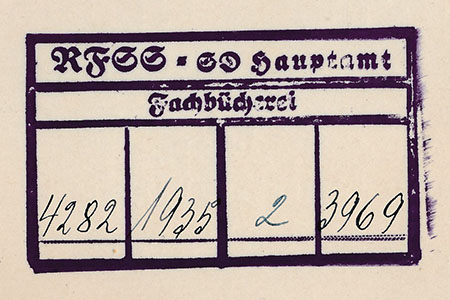 RFSS = SD Hauptamt
Fachbücherei
4282 1935 2 3969